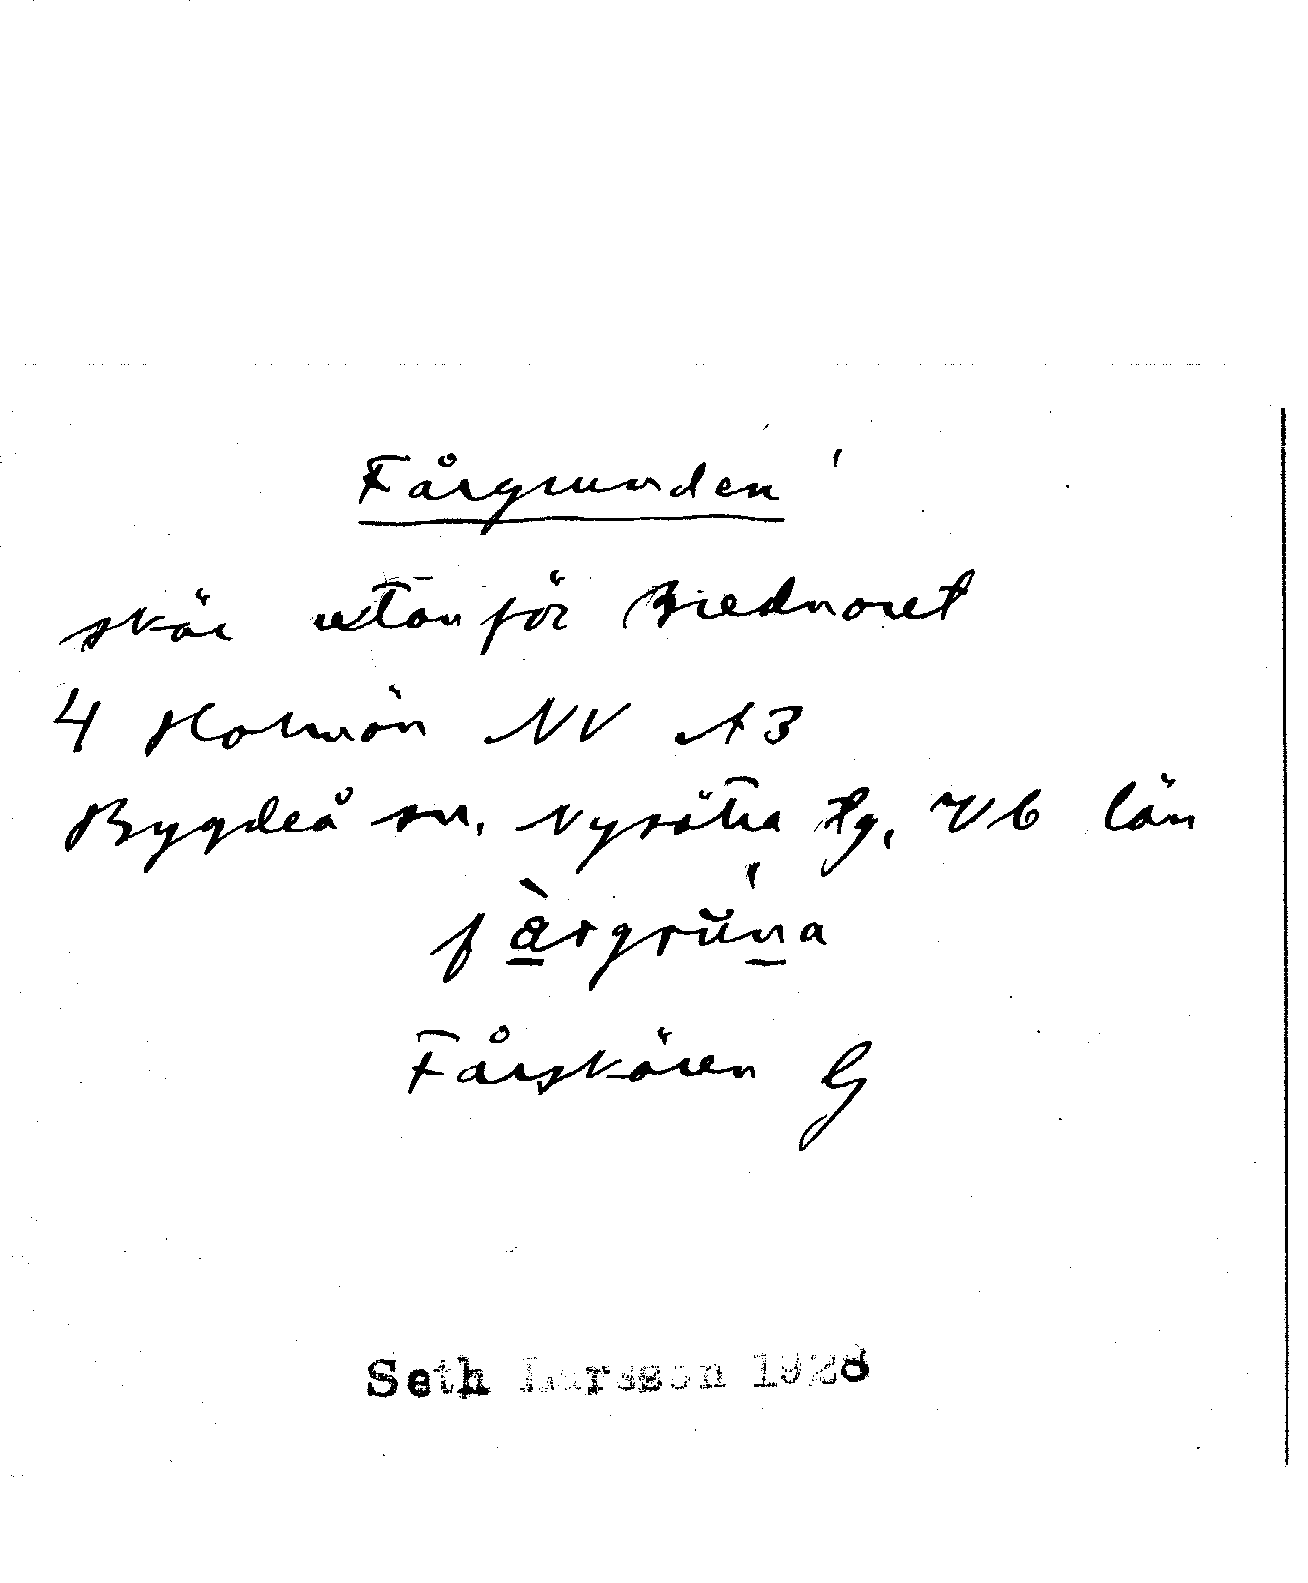 Fårgrunden
skär utanför Brednoret
4 Holmön NV A3
Bygdeå sn. Nysätra tg. Vb län
fàrgrŭna
Fårskären G
Seth Larsson 1928